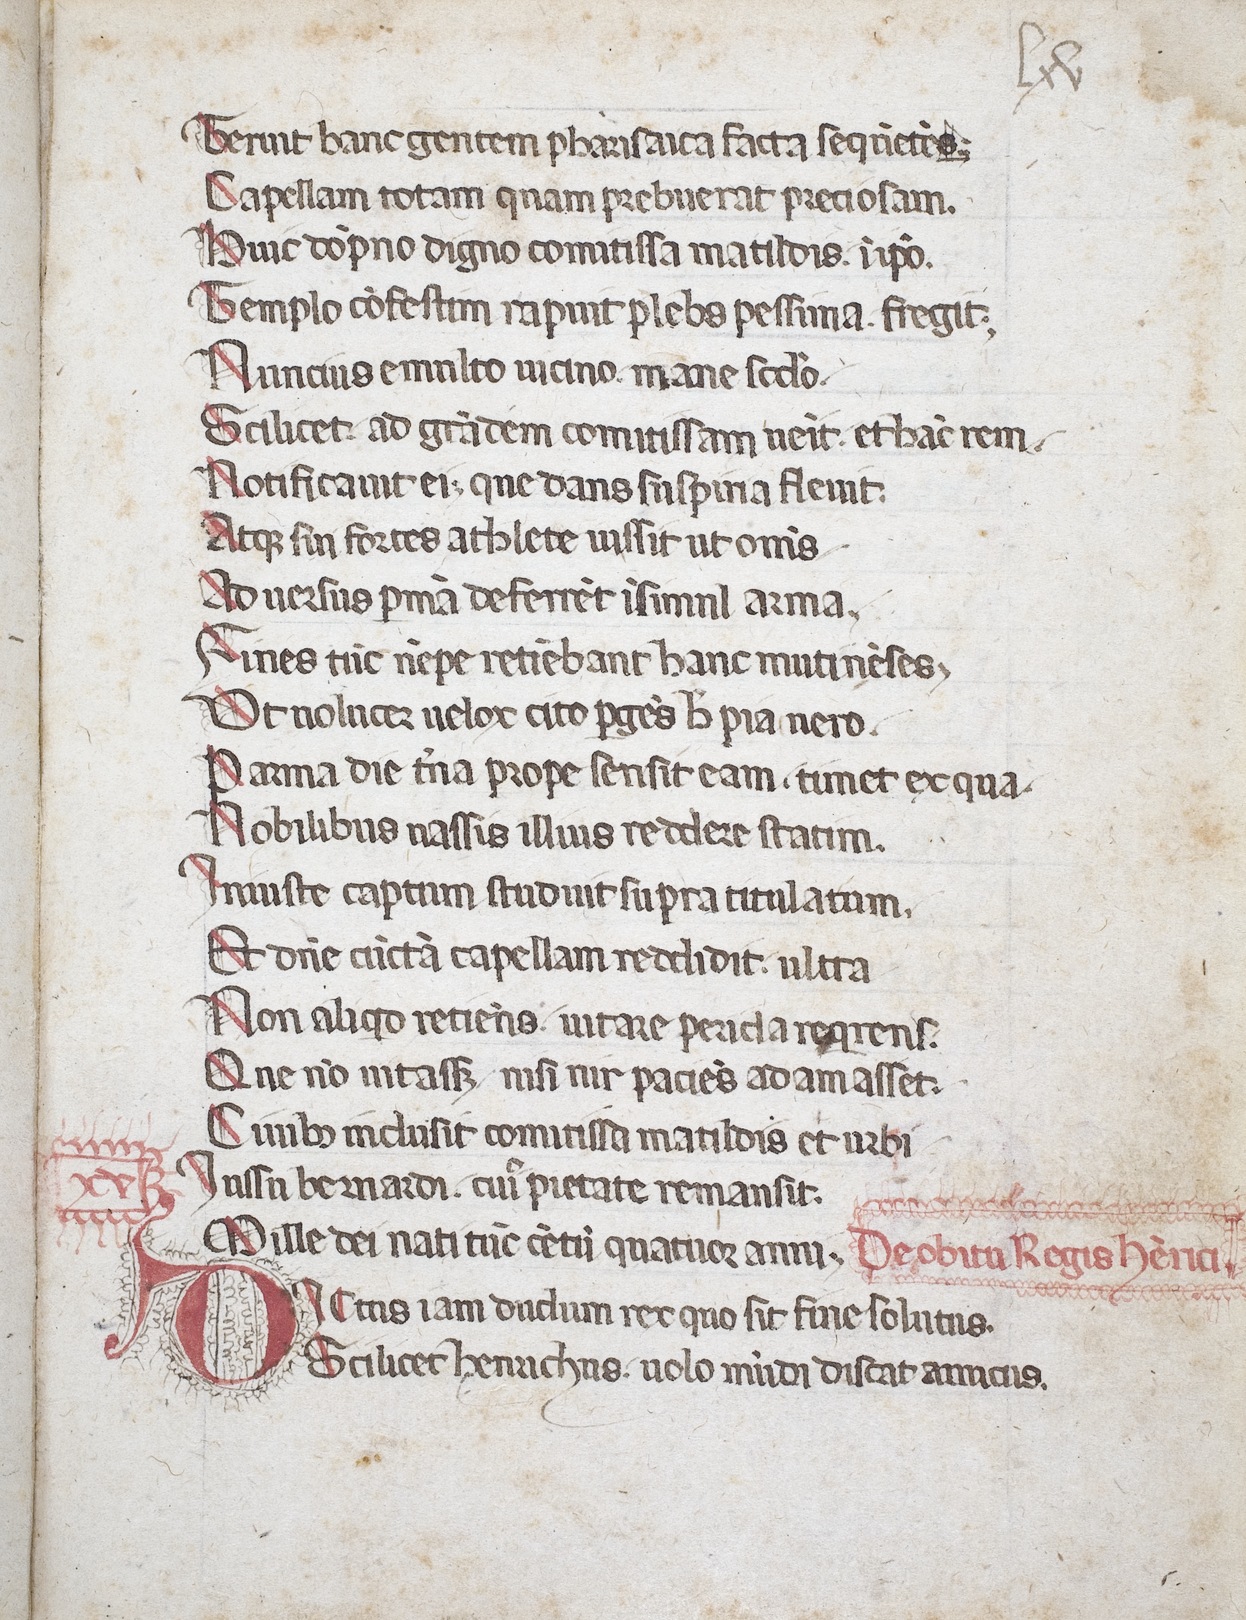 lxv
Teruit hanc gentem pharisaica facta seque̅te̅s;
Capellam totam quam prebuerat preciosam.
Huic do̅pno digno comitissa matildis. i̅ ip̅o.
Templo co̅festim rapuit plebs pessima. fregit;
Nuncius e multo uicino. mane sc̅do.
Scilicet. ad gra̅dem comitissam ue̅it. et ha̅c rem.
Notificauit ei; que dans suspiria fleuit.
Atqꝫ sui̅ fortes athlete iussit ut om̅s
Aduersus p̅ma̅ deferre̅t i̅simul arma.
Fines tu̅c ne̅pe retine̅bant hanc mutine̅ses,
Ut uolucer uelox cito p̲ge̅s h̅ pia uero.
Parma die t̅na prope sensit eam. timet ex qua.
Nobilibus uassis illius reddere statim.
Iniuste captum studuit supra titulatum.
Et dn̅e cu̅cta̅ capellam reddidit. ultra
Non aliqd retine̅s. uitare pericla reqrens.
Que no̅ uitassꝫ nisi uir pacie̅s adamasset.
Ciuibꝫ inclusit comitissa matildis et urbi
Iussu bernardi. cui̅ pietate remansit.
Mille dei nati tu̅c ce̅tu̅ quatuor anni; De obitu Regis He̅rici.
xvꝫ
DIctus iam dudum rex quo sit fine solutus.
Scilicet henrichus. uolo mu̅di discat amicus.